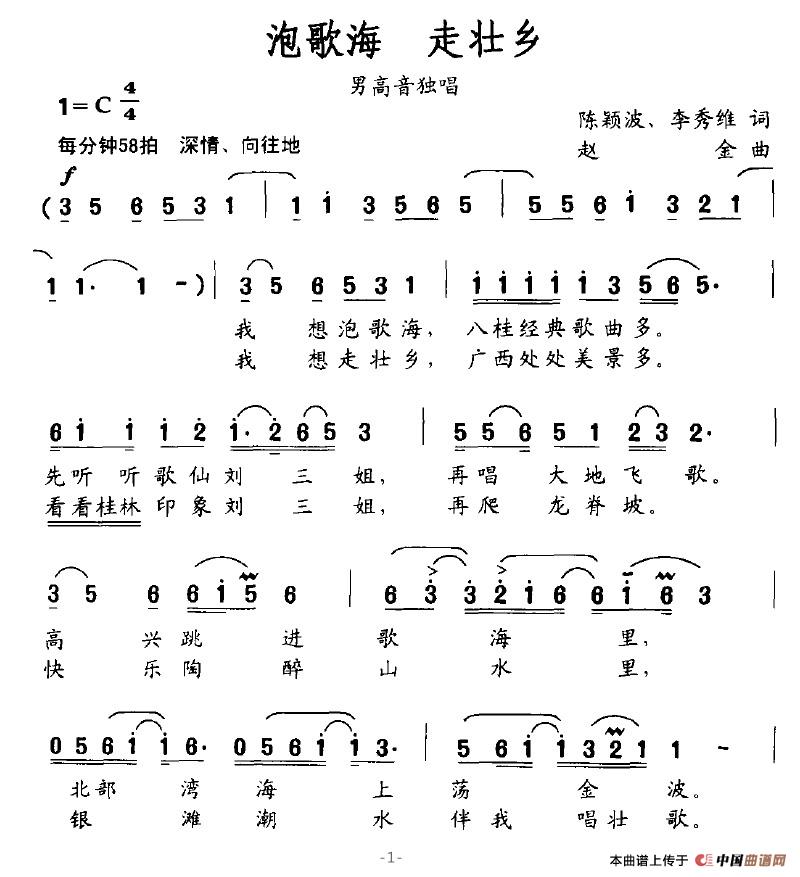 泡歌海 走壮乡
男高音独唱
1=C 4/4
陈颖波、李秀维 词
每分钟58拍 深情、向往地
赵 金 曲
f
( 3 5 6 5 3 1 | 1 1 3 5 6 5 | 5 5 6 1 3 2 1
1 1· 1 - ) | 3 5 6 5 3 1 | 1 1 1 1 1 3 5 6 5·
我 想泡歌海， 八桂经典歌曲多。
我 想走壮乡， 广西处处美景多。
6 1 1 1 2 1· 2 6 5 3 | 5 5 6 5 1 2 3 2·
先听 听歌仙刘 三 姐， 再唱 大地飞 歌。
看看桂林印象刘 三 姐， 再爬 龙脊坡。
3 5 6 6 1 5 6 | 6 3 3 2 1 6 6 1 6 3
高 兴跳 进 歌 海 里，
快 乐陶 醉 山 水 里，
0 5 6 1 1 6· 0 5 6 1 1 3· | 5 6 1 1 3 2 1 1 -
北部 湾 海 上 荡 金 波。
银 滩 潮 水 伴我 唱壮 歌。
-1-
本曲谱上传于 中国曲谱网